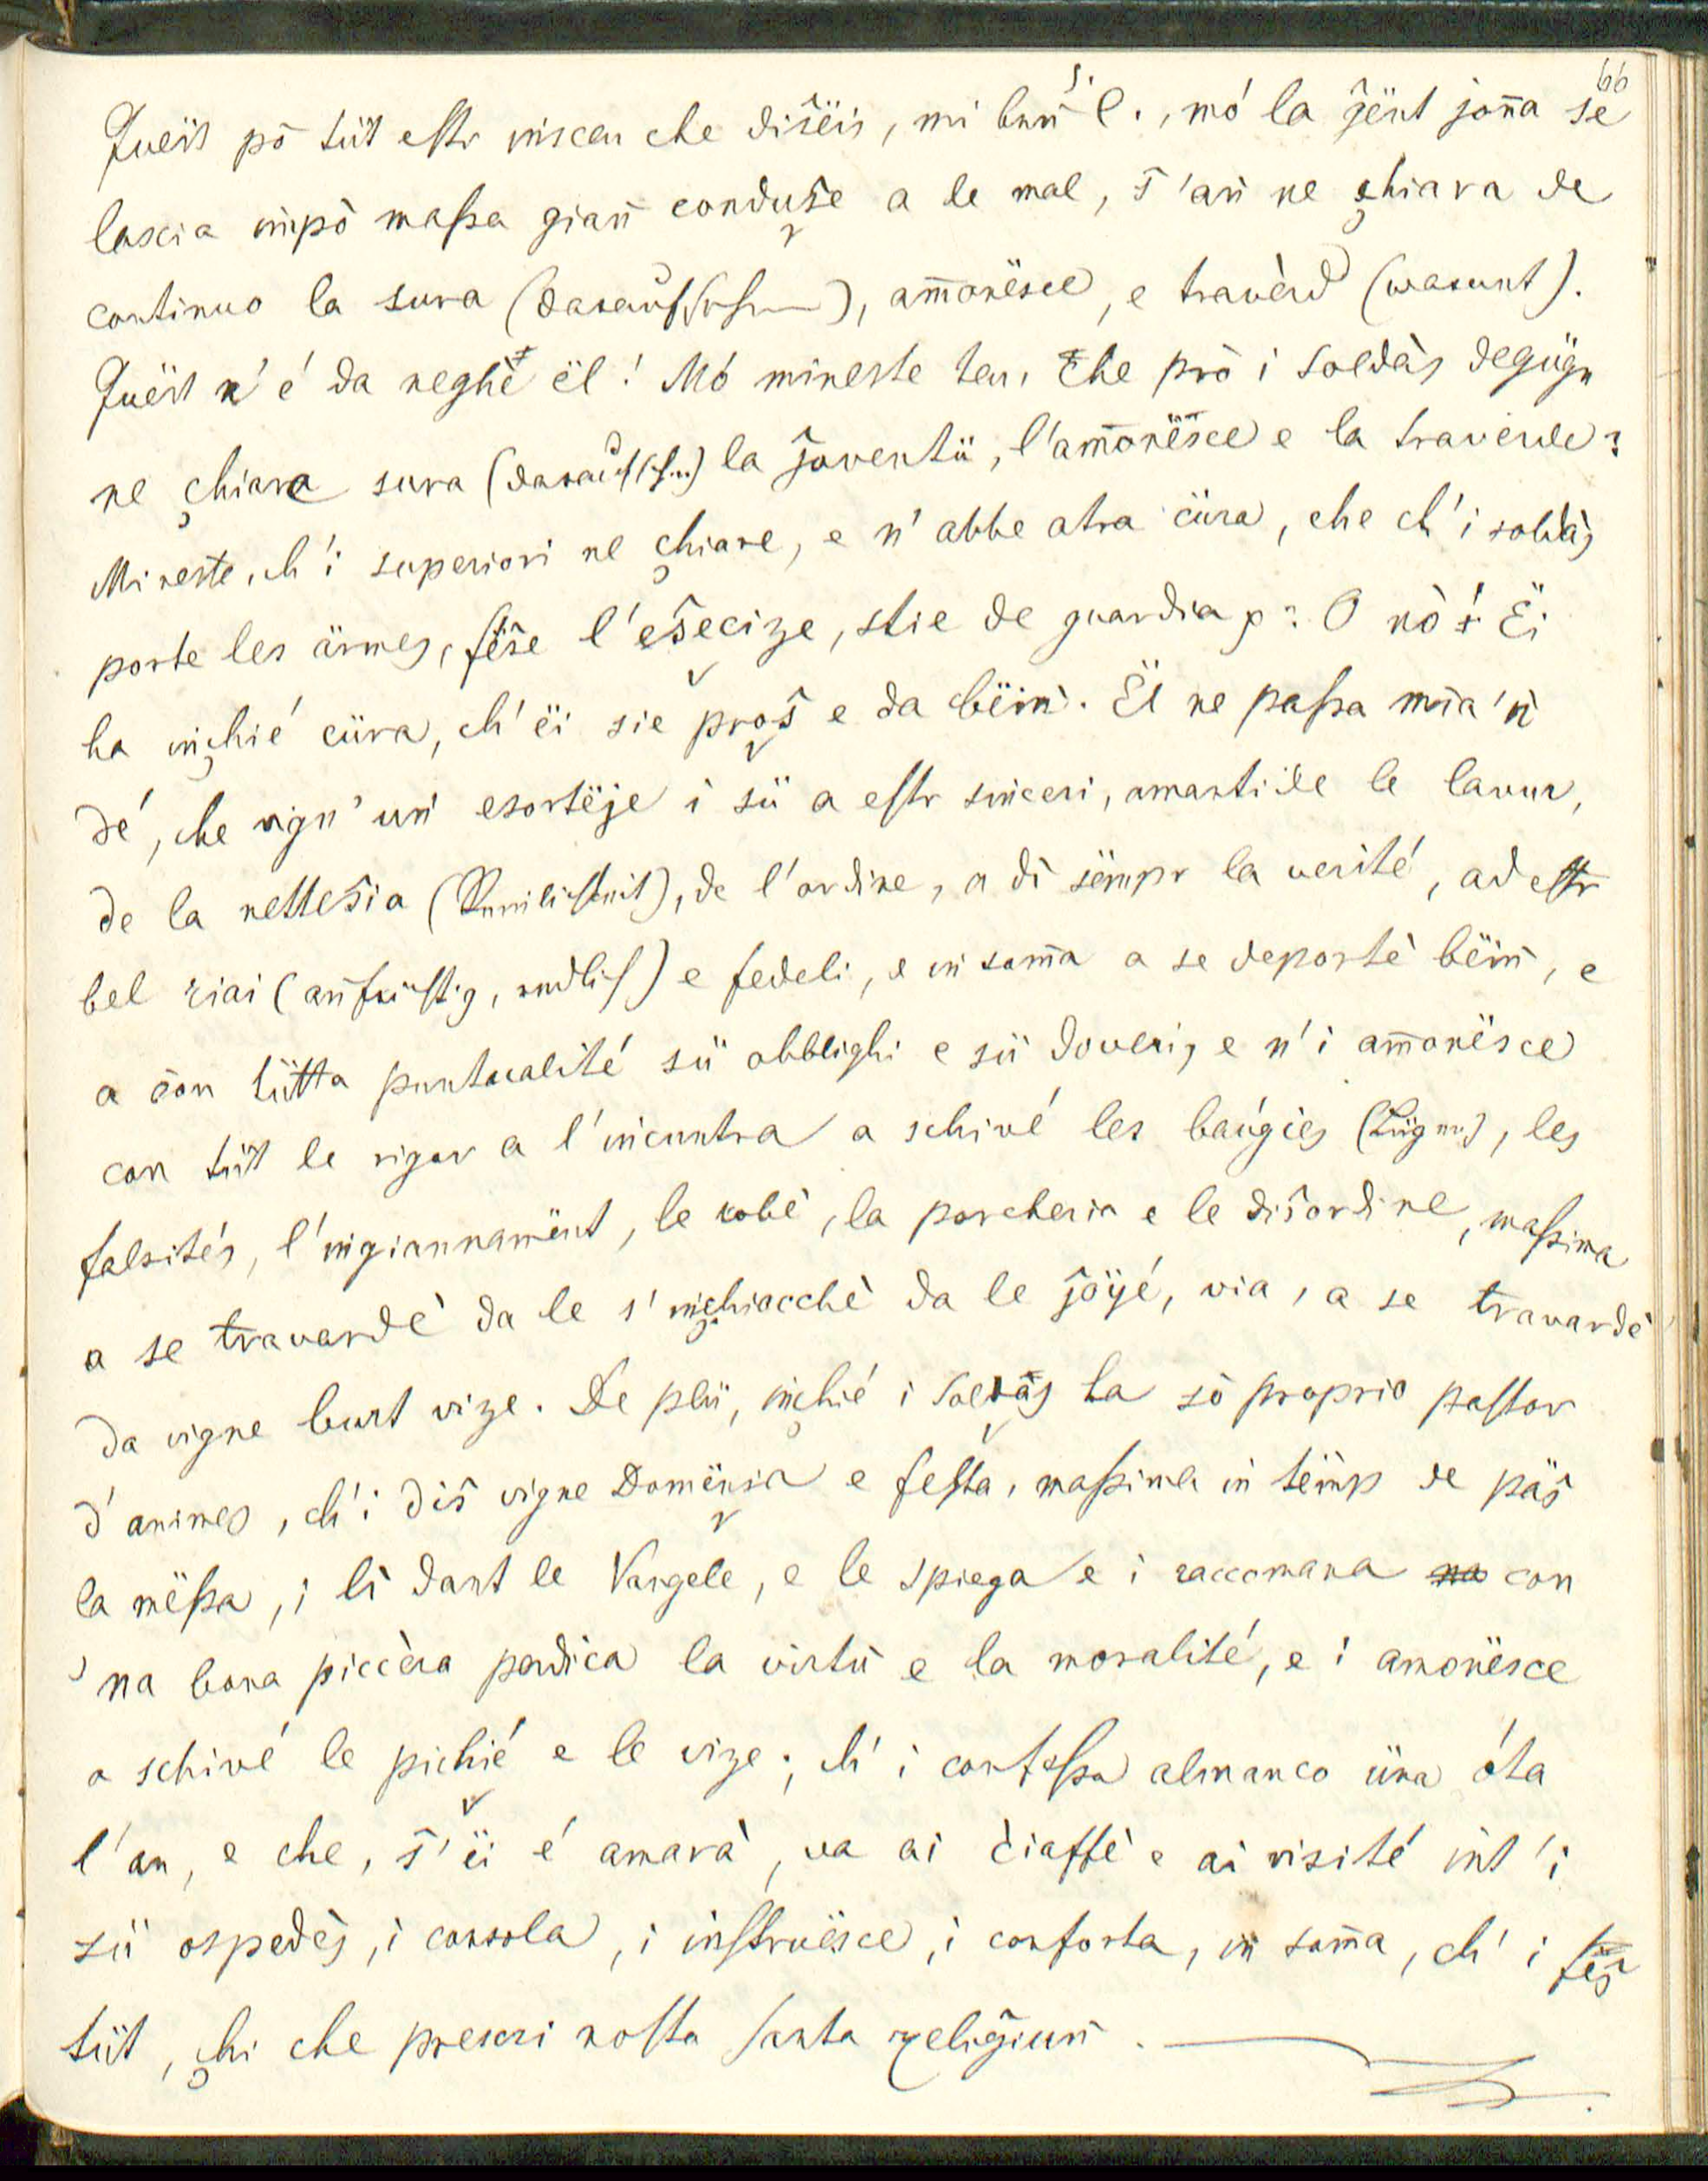 66
Quëst pò tüt estr visceu che dišëis, mi buṅ S. C., mó la ĝënt joṅa se
lascia impò massa giaṅ conduše a le mal, š'aṅ ne chiara de
continuo la sura, amonësce, e travèrd (warunt).
Quëst n'é da neghè ël! Mó mineste teu, che prò i soldàs degügn
ne chiara sura la ĝoventü, l'amonësce e la traverde?
Mineste, ch'i superiori ne chiare, e n'abbe atra cüra, che ch'i soldàs
porte les ärmes, fëše l'ešecize, stie de guardia p? O nò! Ëi
ha inchié cüra, ch'ëi sie proš e da bëiṅ. Ël ne passa mia 'ṅ
dé, che vign' uṅ esortëje i sü a estr sinceri, amanti de le lavur,
de la nettešia, de l'ordine, a dì sëmpr la verité, ad estr
bel riai (aufrichtig, redlich) e fedeli, e in soṁa a se deportè bëiṅ, e
a con tütta puntualité sü obblighi e sü doveri, e n'i amonësce
con tüt le rigor a l'incuntra a schivé les baúgies (Lügen), les
falsités, l'ingiannamënt, le robè, la porcheria e le dišordine, massima
a se travardè da le s'inchiocchè da le jöyé, via, a se travardè
da vigne burt vize. De plü, inchié i soldàs ha sò proprio pastor
d'animes, ch'i diš vigne Domënia e festa, massima in tëimp de päš
la mëssa, i lì dant le Vangele, e le spiega e i raccomana con
'na bona piccera perdica la virtü e la moralité, e i amonësce
a schivé le pichié e le vize; ch'i confessa almanco üna óta
l'an, e che, š'ëi é amarà, va ai ciaffè e ai visité int'i
sü ospedès, i consola, i instruësce, i conforta, in soṁa, ch'i fëš
tüt, chi che prescri nosta santa religiuṅ.